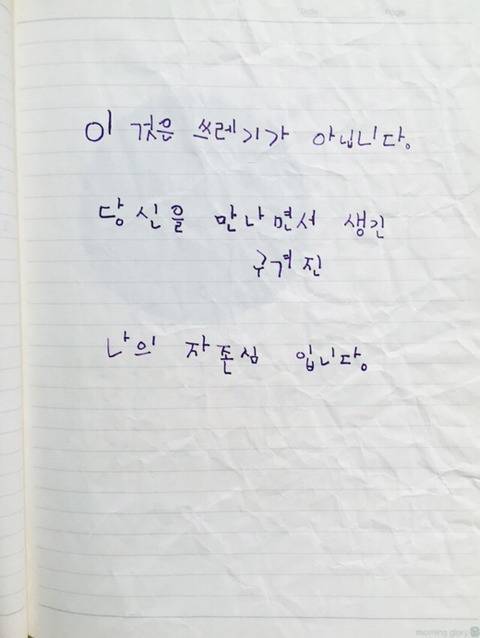 이 것은 쓰레기가 아닙니다.
당신을 만나면서 생긴
구겨진
나의 자존심 입니다.
morning glory